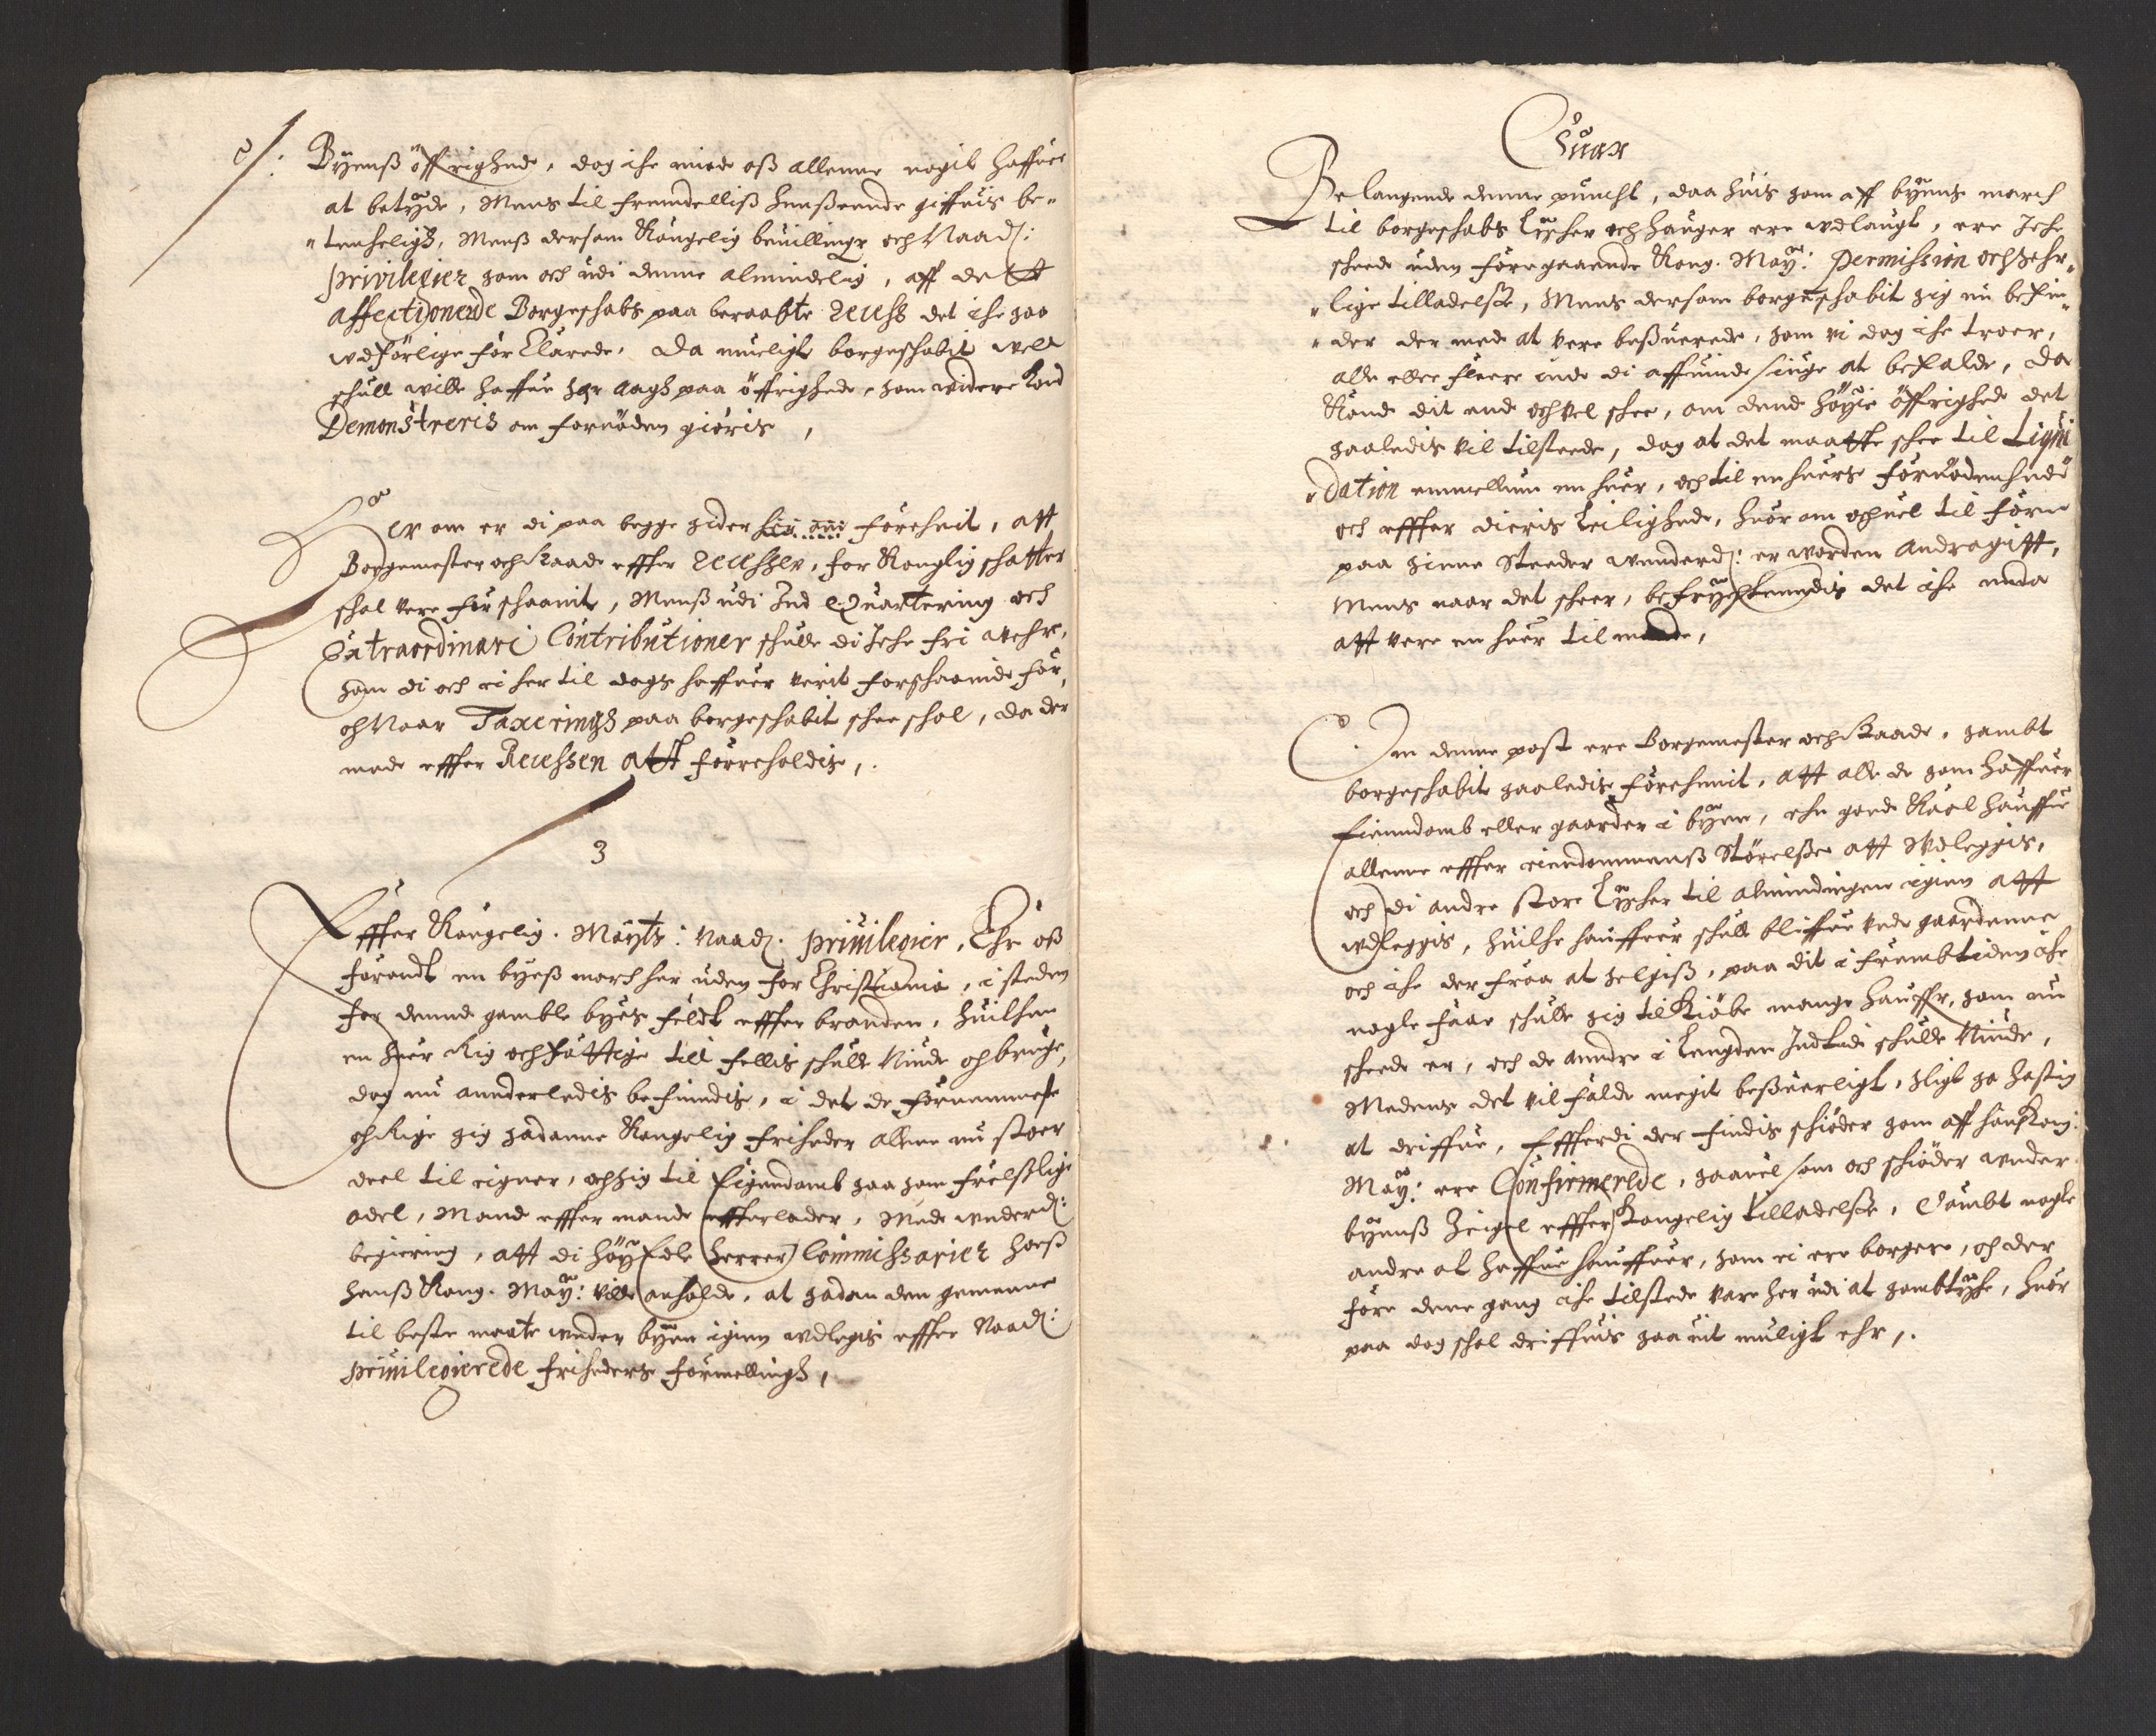 Byenß öffrighed, dog iche med oß allenne nogit haffuer
at betyde, Mens til fremdelliß henseende giffuis be-
"tenchelig, Menß dersom Kongelig beuillinge och Naad:
privilegier som och udi denne almindelig, aff de
affectionerde Borgeschabs paa beraabte recess det iche saa
udførlige for Clarede, da mueligt borgeschabit vell
schull wille haffue her aagt paa öffrighede, som widere kand
Demonstreris om fornöden giøris,
Her om er di paa begge sider foreenit, att
Borgemester och Raade effter recessen, for Kongelig schatter
schal vere for schaanit, Menß udi Ind Quartering och
Extraordinari Contributioner schulle di Iche fri vehre,
som di och ei her til dags haffuer verit forschaanede for,
och Naar Taxerings paa borgeschabit schee schal, da der
med effter Recessen att forreholdis,
3
Effter Kongelig. Mayts: Naad: privilegier, Ehr oß
forundt en byeß march her uden for Christiania, i steden
for dennd gamble byes feldt effter branden, huilken
en huer Rig och fattige till fellis schulle Niude och bruge,
dog nu annderledis befinndis, i det de fornemmeste
och Rige sig sadanne Kongelig friheder allene nu stoer
deel til eigner, och sig til Eigendomb saa som frelselige
odel, Mand effter mand effterlader, Med underd:
begiering, att di Høy Edle herrer Commissarier hoeß
hanß Kong. May: wille anholde, at sadan den gemeene
til beste maate under byen igien udlegis effter Naad:
privilegierede friheders formelling,
Suar
Belangende denne puncht, daa huis som aff byens march
til borgeschabs Løcher och hauger ere udlaugt, ere Iche
scheede uden foregaaende Kong. May: Permission och sehr-
"lige tilladelse, Mens dersom borgeschabit sig nu befin-
"der der med at vere besuerede, som vi dog iche troer,
alle eller fleere ende di affuind siuge at befalde, da
Kunde dit end och vel schee, om dend Høye öffrighed det
saaledis vil tilsteede, dog at det maatte schee til Liqui
"dation emmellum en huer, och til en huers fornödenhed
och effter dieris Leilighed, huor om och uel til forn
paa sinne Steeder underd: er worden andragitt,
Mens naar det scheer, befrychtenndis det iche enda
att vere en huer til made,
Om denne post ere Borgemester och Raade, sambt
borgeschabit saaledis foreenit, att alle de som haffuer
Eiendomb eller gaarder i byen, ehn goed Kaal hauffue
allenne effter eiendommenß Størelse att udleggis,
och di andre store Løcher til almindingen igien att
udleggis, huilche hauffuer schulle bliffue ved gaardenne
och iche der fraa at selgiß, paa dit i frembtiden iche
nogle faae schulle sig til Kiöbe mange hauffr, som nu
scheede er, och de anndre i Lengden Intet di schulle Niude,
Medens det vil falde megit besuerligt, sligt sa hastig
at driffue, Effterdi der findis schiøder som aff hanß Kong:
May: ere Confirmerede, saauel som och schiøder under
byenß Seigel effter Kongelig tilladelse, Sambt nogle
andre at haffue hauffuer, som ei ere borgere, och der
fore denne gang iche tilstede vare her udi at sambtyche, huor
paa dog schal driffuis saa uit muligt ehr,